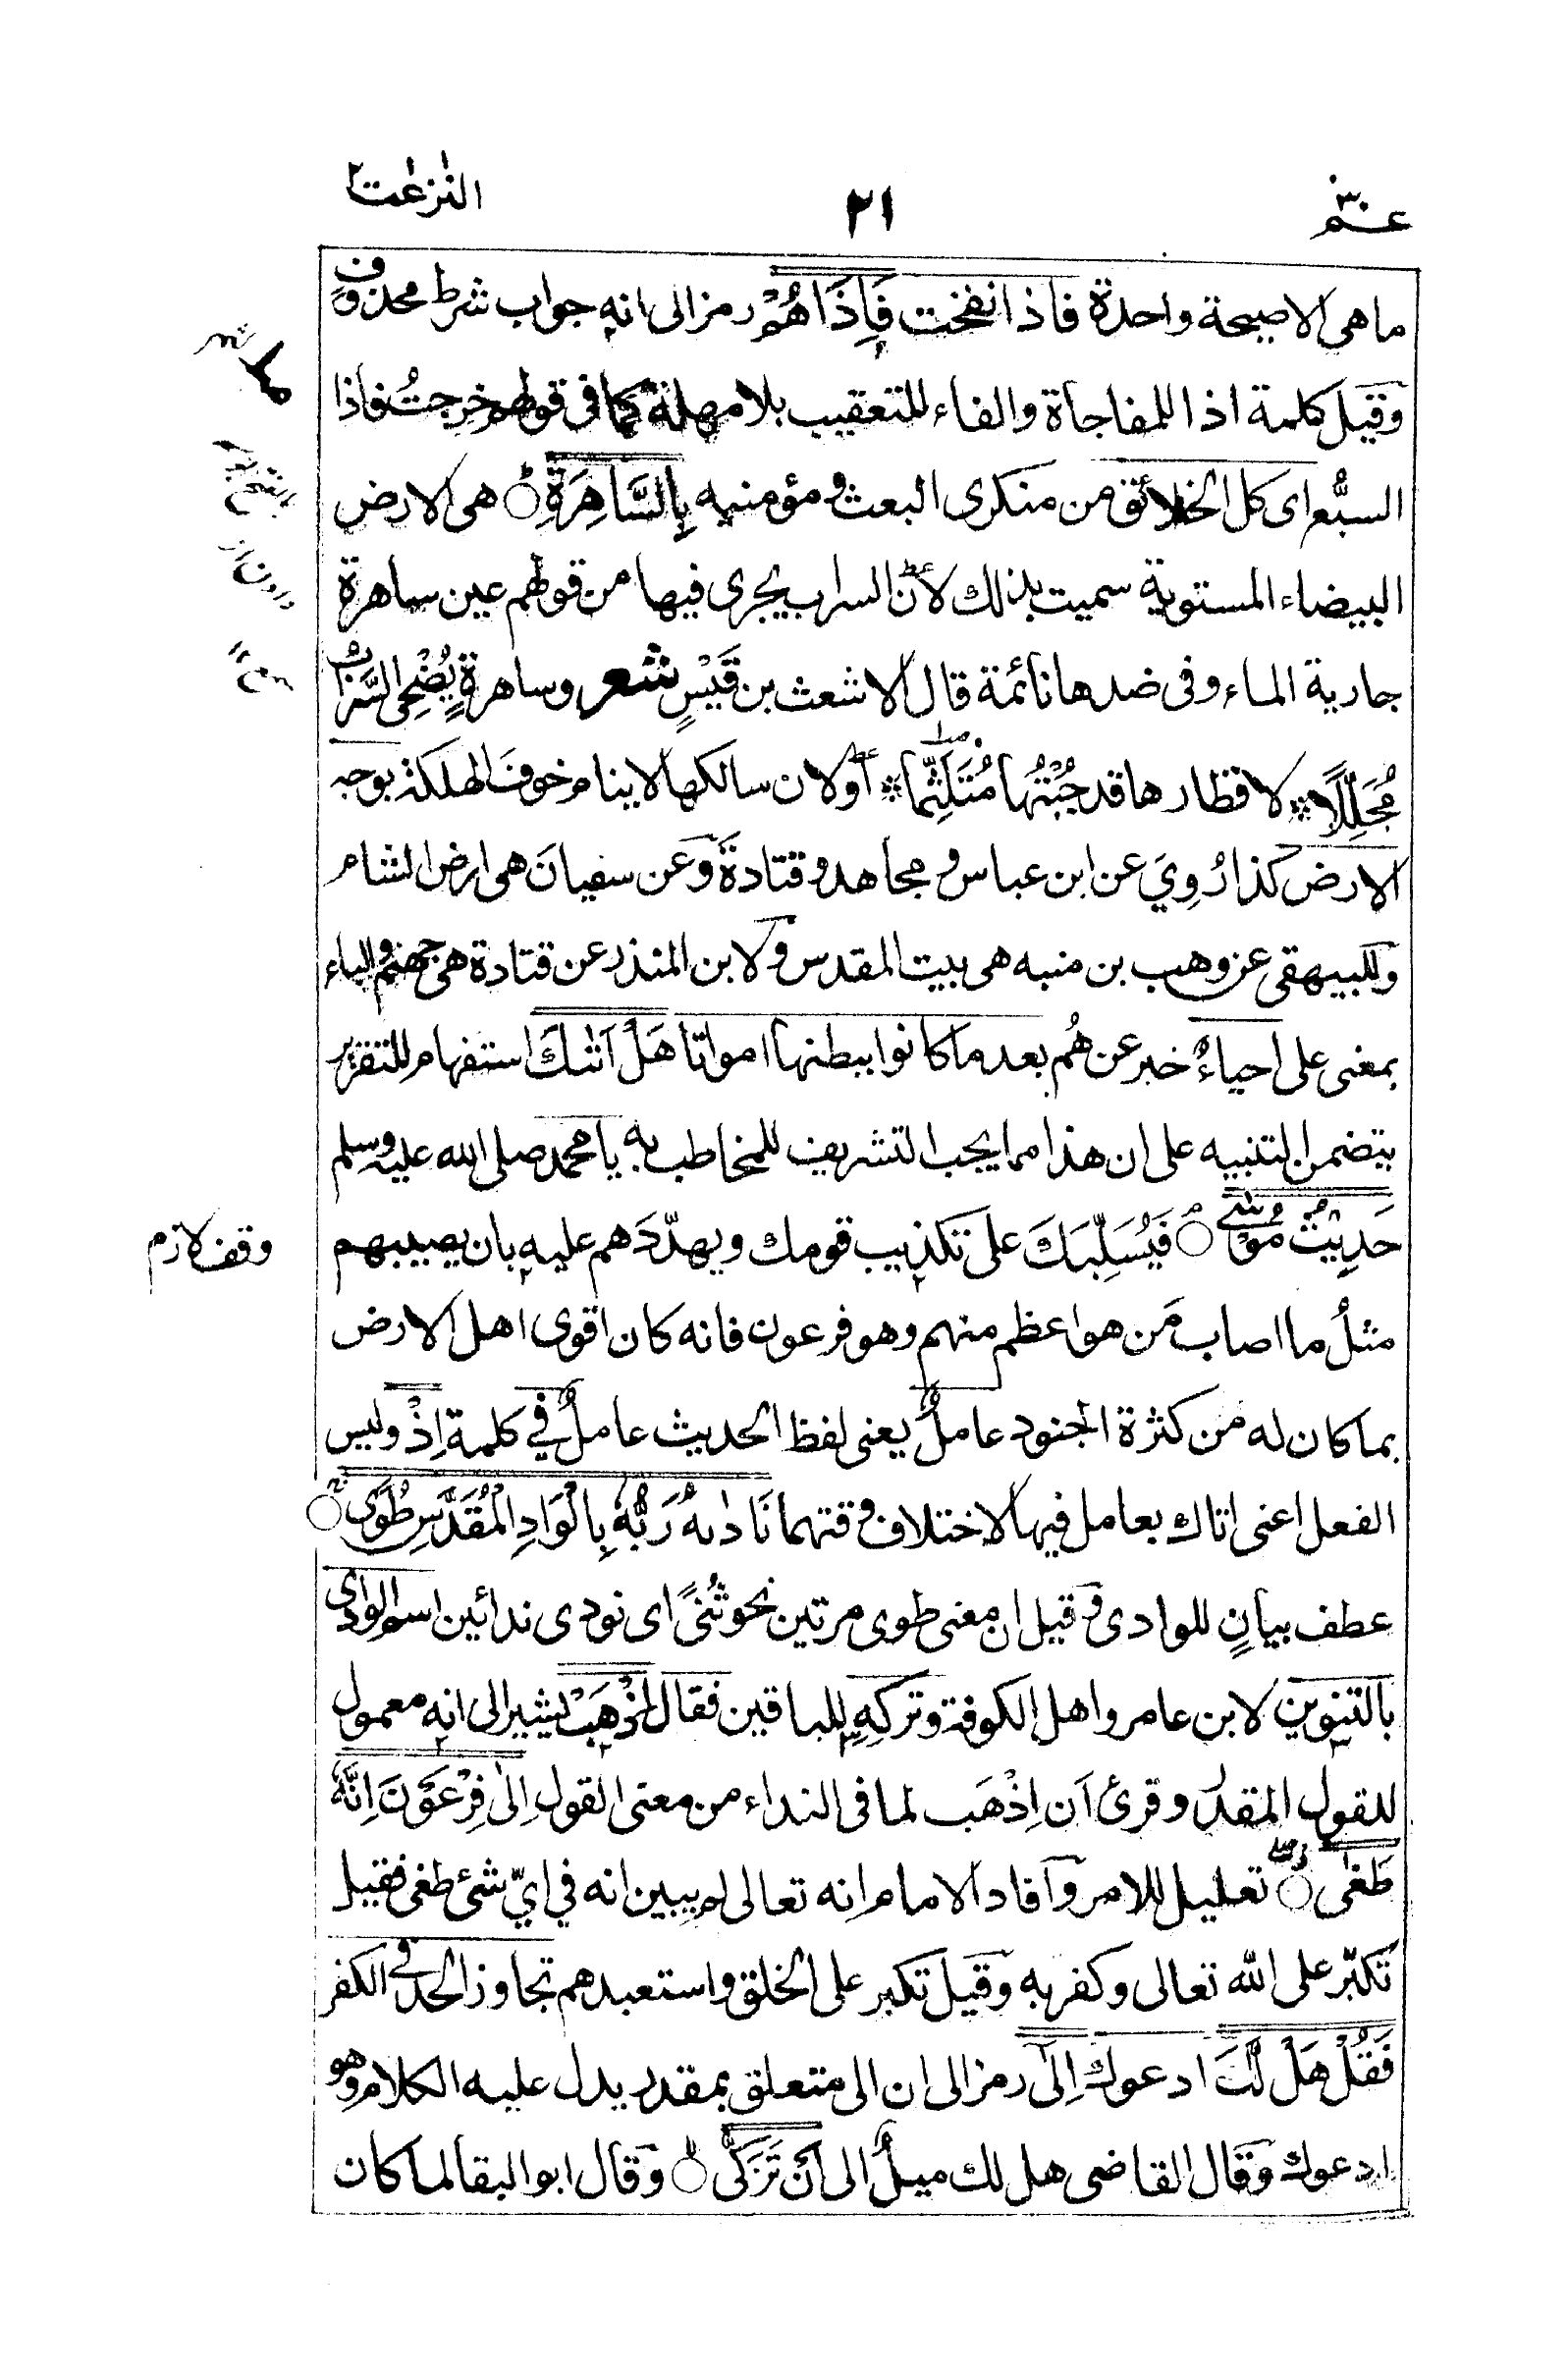 عـم ٣٠
٢١
النّزعٰت
ما هى الا صيحة واحدة فاذا نفخت فَاِذَا هُمْ رمز الى انه جواب شرط محذوف
وقيل كلمة اذا للمفاجأة والفاء للتعقيب بلا مهلة كما فى قولهم خرجتُ فاذا
السبُّع اى كل الخلائق من منكرى البعث و مؤمنيه بِالسَّاهِرَةِ ○ هى الارض
البيضاء المستوية سميت بذلك لأن السراب يجرى فيها من قولهم عين ساهرة
جارية الماء وفى ضدها نائمة قال الاشعث بن قَيْسٍ شعر وساهرةٍ يُضْحِى السَّرَابُ
مُجَلِّلًا * لاقطارها قد جُبْتُها مُتَلَثِّما * أو لان سالكها لاينام خوف الهلكة بوجه
الارض كذا رُوِيَ عن ابن عباس و مجاهد و قتادةَ وعن سفيان هى ارض الشام
وللبيهقى عن وهب بن منبه هى بيت المقدس ولابن المنذر عن قتادة هى جهنم والباء
بمعنى على احياءٌ خبر عن هُم بعد ما كانوا ببطنها امواتا هَلْ اَتٰىكَ استفهام للتقرير
يتضمن التنبيه على ان هذا مما يجب التشريف للمخاطب به يا محمد صلى الله عليه وسلم
حَدِيْثُ مُوْسٰى ○ فَيُسَلِّيَكَ على تكذيب قومك ويهدّدَهم عليه بان يصيبهم
وقف لازم
مثلُ ما اصاب مَن هو اعظم منهم وهو فرعون فانه كان اقوى اهل الارض
بما كان له من كثرة الجنود عاملٌ يعنى لفظ الحديث عاملٌ في كلمة اِذْ وليس
الفعل اعنى اتاك بعامل فيها لاختلاف وقتهما نَادٰىهُ رَبُّهٗ بِالْوَادِ الْمُقَدَّسِ طُوًى ○
عطف بيانٍ للوادى وقيل ان معنى طوى مرتين نحو ثُنىً اى نودى ندائين اسم الوادى
بالتنوين لابن عامر واهل الكوفة وتركِهِ للباقين فقال اذْهَبْ يشير الى انه معمول
للقول المقدر وقرئ اَن اِذْهَب لما فى النداء من معنى القول اِلىٰ فِرْعَوْنَ اِنَّهٗ
طَغٰى ○ تعليل للامر وأفاد الامام انه تعالى لم يبين انه في ايِّ شئ طغى فقيل
تكبّر على الله تعالى وكفر به وقيل تكبر على الخلق واستعبدهم تجاوز الحد فى الكفر
فَقُلْ هَلْ لَّكَ ادعوك اِلٰى رمز الى ان الى متعلق بمقدر يدل عليه الكلام وهو
ادعوك وقال القاضى هل لك ميلٌ الى اَنْ تَزَكّٰى ○ وقال ابو البقا لما كان